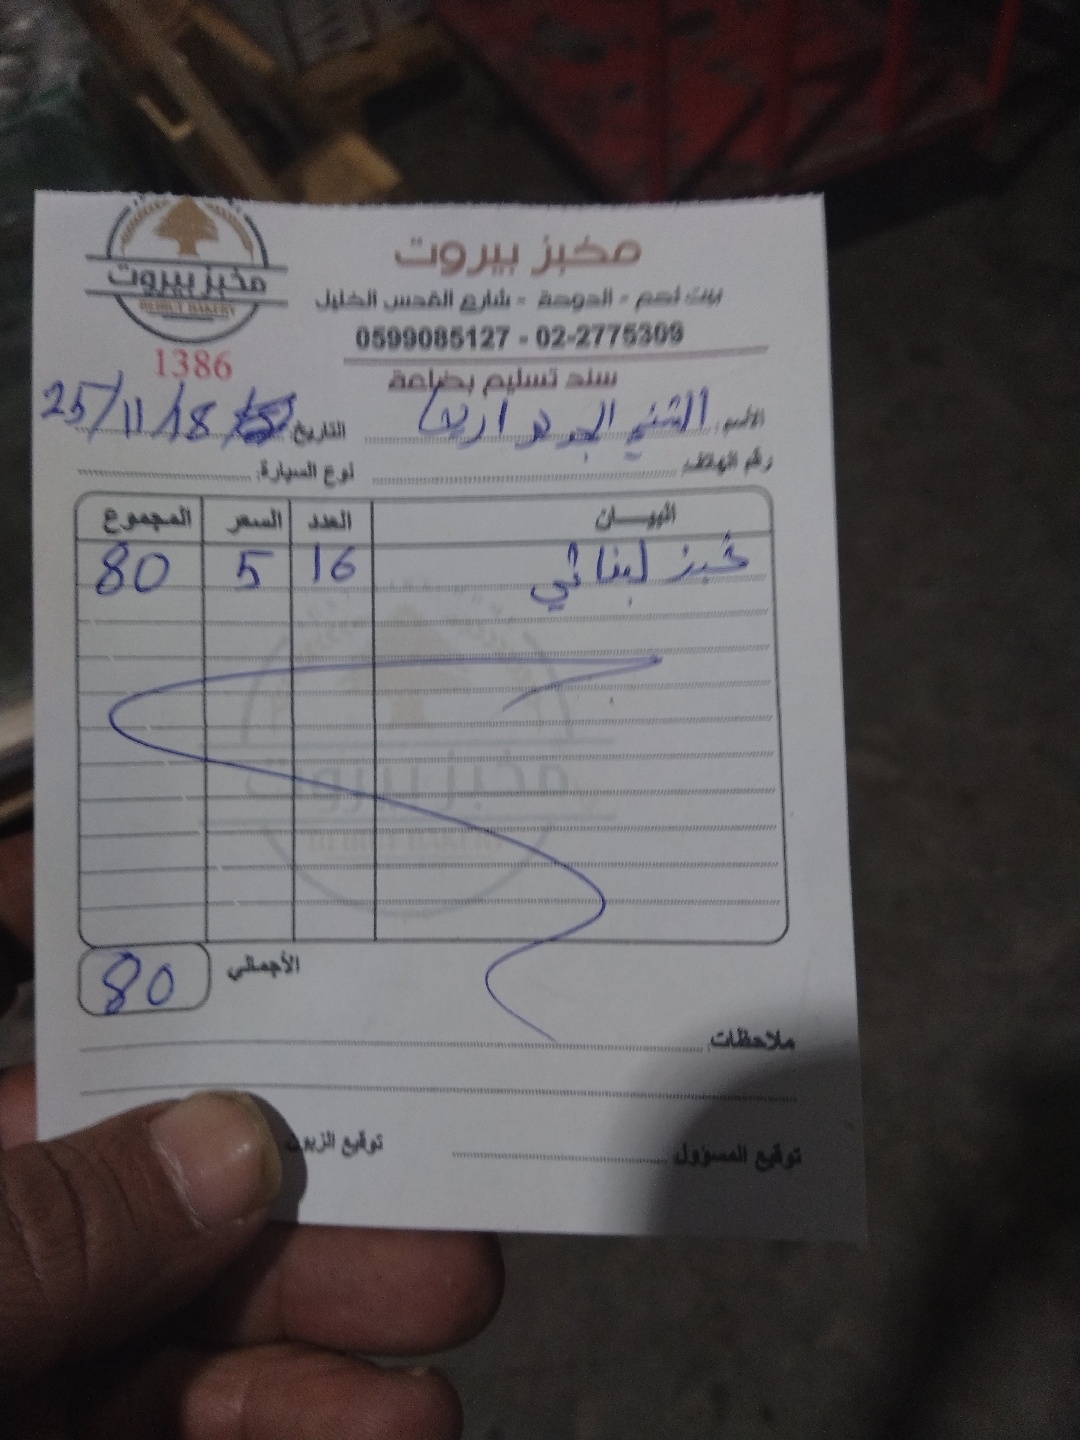 مخبز بيروت
BEIRUT BAKERY
1386
مخبز بيروت
بيت لحم - الدوحة - شارع القدس الخليل
0599085127 - 02-2775309
سند تسليم بضاعة
الأسم: الشني الجديد اريحا
التاريخ: 25/11/18
رقم الهاتف:
نوع السيارة:
البيــــان العدد السعر المجموع
خبز لبناني 16 5 80
مخبز بيروت
BEIRUT BAKERY
الأجمالي 80
ملاحظات:
توقيع المسؤول
توقيع الزبون